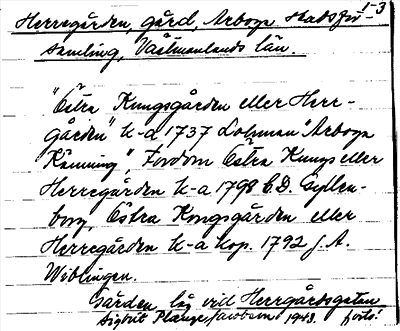 1-3
Herregården, gård, Arboga stadsför-
samling, Västmanlands län.
"Östra Kungsgården eller Herr-
gården" k-a 1737 Lohman "Arboga
Känning", Fordom Östra Kungs eller
Herregården k-a 1798 C.D. Gyllen-
borg, Östra Kongsgården eller
Herregården k-a kop. 1792 J. A.
Wiblingen.
Gården låg vid Herrgårdsgatan
Sigbrit Plænge Jacobson 1943. forts!